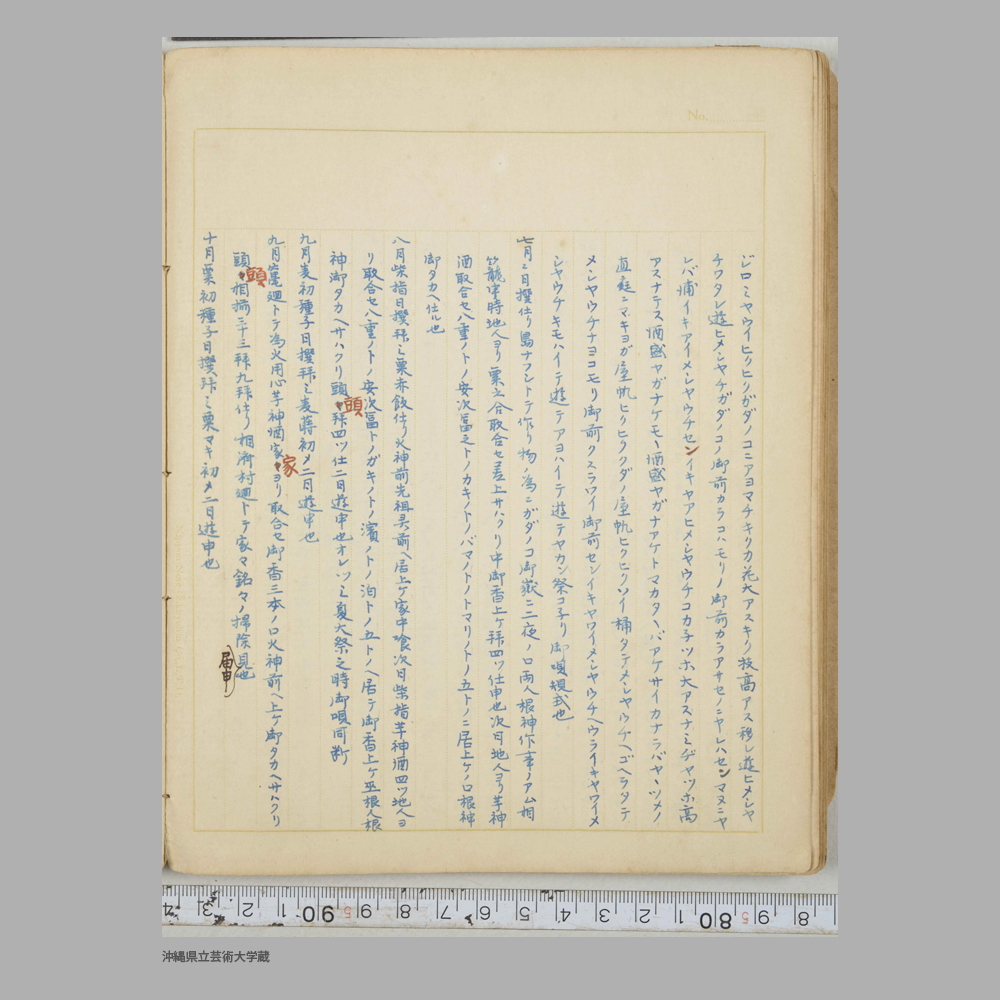 No.
ジロミヤウイヒクヒクガダノコニアヨマチキリカ花大アスキリ枝高アス移レ遊ヒメシヤ
チワタレ遊ヒメシヤチガダノコノ御前カラコハモリノ御前カラアサセノニヤレハセンマヌニヤ
レバ浦イキアイメシヤウチセンイキヤアヒメシヤウチコカ子ツホ大アスナミヂヤツホ高
アスナテス酒盛ヤガナケモヽ酒盛ヤガナアケトマカタヘバアケサイカナラバヤヽツメノ
直庭ニマキヨガ屋帆ヒクヒククダノ屋帆ヒクヒクソイ桶タテメシヤウチヘゴヘラタテ
メシヤウチナヨコモリ御前クスラワイ御前センイキヤワイメシヤウチヘウライキヤワイメ
シヤウチキモハイテ遊テアヨハイテ遊テヤカン祭コ子リ御唄規式也
七月二日撰仕リ島ナフシトテ作リ物ノ為ニガダノコ御嶽ニ二夜ノロ両人根神作事ノアム相
籠申時地人ヨリ粟立合取合セ差上サハクリ中御香上ケ拝四ツ仕申也次日地人ヨリ芋神
酒取合セ八重ノトノ安次富之トノカキノトノバマノトノトマリノトノ五トノニ居上ケノロ根神
御タカヘ仕ル也
八月柴指日撰拝ミ粟赤飯仕リ火神前先祖灵前ヘ居上ケ家中喰次日柴指芋神酒四ツ地人ヨ
リ取合セ八重ノトノ安次富トノガキノトノ濱ノトノ泊トノ五トノヘ居テ御香上ケ巫根人根
神御タカヘサハクリ頭々拝四ツ仕二日遊申也オレツミ夏大祭之時御唄同断
頭
九月麦初種子日撰拝ミ麦蒔初メ二日遊申也
九月竃廻トテ為火用心芋神酒家々ヨリ取合セ御香三本ノロ火神前ヘ上ケ御タカヘサハクリ
家
頭々相揃三十三拝九拝仕リ相濟村廻トテ家々銘々ノ掃除見也
頭
届申
十月粟初種子日撰拝ミ粟マキ初メ二日遊申也
沖縄県立芸術大学蔵